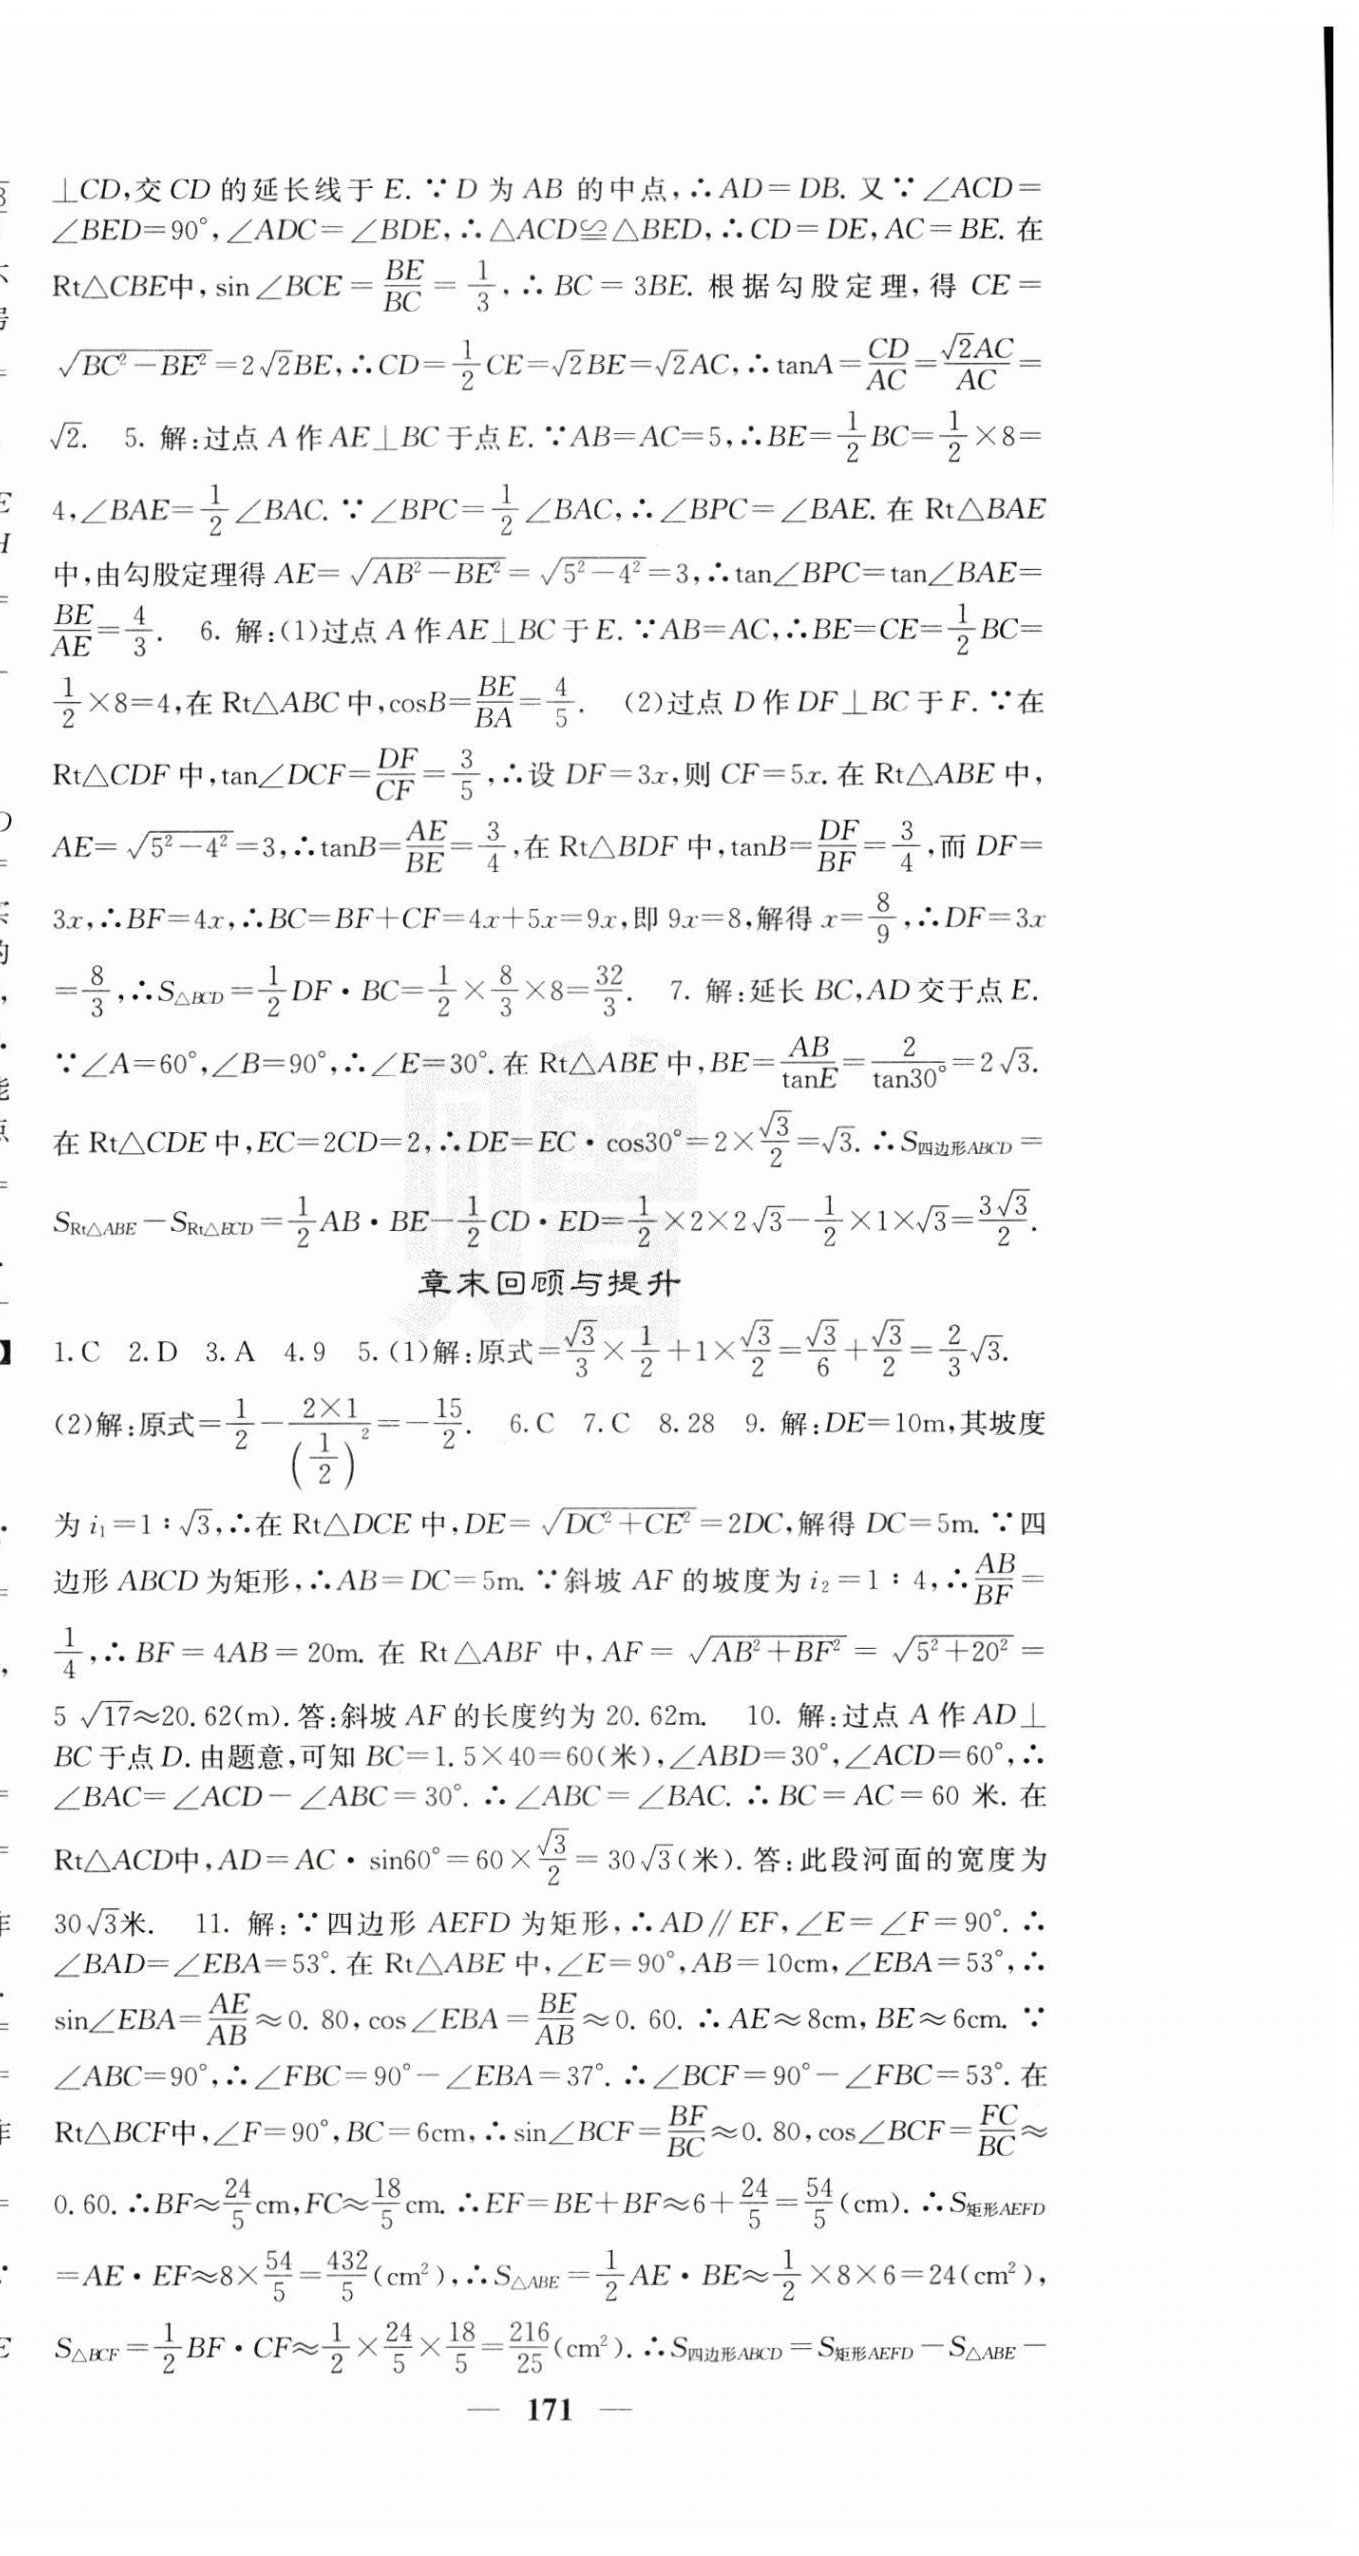 ⊥CD,交CD的延长线于E.∵D为AB的中点,∴AD=DB.又∵∠ACD=
∠BED=90°,∠ADC=∠BDE,∴△ACD≌△BED,∴CD=DE,AC=BE.在
Rt△CBE中,sin∠BCE=BE/BC=1/3,∴BC=3BE.根据勾股定理,得CE=
√(BC²-BE²)=2√2BE,∴CD=1/2CE=√2BE=√2AC,∴tanA=CD/AC=√2AC/AC=
√2. 5.解:过点A作AE⊥BC于点E.∵AB=AC=5,∴BE=1/2BC=1/2×8=
4,∠BAE=1/2∠BAC.∵∠BPC=1/2∠BAC,∴∠BPC=∠BAE.在Rt△BAE
中,由勾股定理得AE=√(AB²-BE²)=√(5²-4²)=3,∴tan∠BPC=tan∠BAE=
BE/AE=4/3. 6.解:(1)过点A作AE⊥BC于E.∵AB=AC,∴BE=CE=1/2BC=
1/2×8=4,在Rt△ABC中,cosB=BE/BA=4/5. (2)过点D作DF⊥BC于F.∵在
Rt△CDF中,tan∠DCF=DF/CF=3/5,∴设DF=3x,则CF=5x.在Rt△ABE中,
AE=√(5²-4²)=3,∴tanB=AE/BE=3/4,在Rt△BDF中,tanB=DF/BF=3/4,而DF=
3x,∴BF=4x,∴BC=BF+CF=4x+5x=9x,即9x=8,解得x=8/9,∴DF=3x
=8/3,∴S△BCD=1/2DF·BC=1/2×8/3×8=32/3. 7.解:延长BC,AD交于点E.
∵∠A=60°,∠B=90°,∴∠E=30°.在Rt△ABE中,BE=AB/tanE=2/tan30°=2√3.
在Rt△CDE中,EC=2CD=2,∴DE=EC·cos30°=2×√3/2=√3.∴S四边形ABCD=
SRt△ABE-SRt△ECD=1/2AB·BE-1/2CD·ED=1/2×2×2√3-1/2×1×√3=3√3/2.
章末回顾与提升
1.C 2.D 3.A 4.9 5.(1)解:原式=√3/3×1/2+1×√3/2=√3/6+√3/2=2/3√3.
(2)解:原式=1/2-2×1/(1/2)²=-15/2. 6.C 7.C 8.28 9.解:DE=10m,其坡度
为i₁=1:√3,∴在Rt△DCE中,DE=√(DC²+CE²)=2DC,解得DC=5m.∵四
边形ABCD为矩形,∴AB=DC=5m.∵斜坡AF的坡度为i₂=1:4,∴AB/BF=
1/4,∴BF=4AB=20m.在Rt△ABF中,AF=√(AB²+BF²)=√(5²+20²)=
5√17≈20.62(m).答:斜坡AF的长度约为20.62m. 10.解:过点A作AD⊥
BC于点D.由题意,可知BC=1.5×40=60(米),∠ABD=30°,∠ACD=60°,∴
∠BAC=∠ACD-∠ABC=30°.∴∠ABC=∠BAC.∴BC=AC=60米.在
Rt△ACD中,AD=AC·sin60°=60×√3/2=30√3(米).答:此段河面的宽度为
30√3米. 11.解:∵四边形AEFD为矩形,∴AD∥EF,∠E=∠F=90°.∴
∠BAD=∠EBA=53°.在Rt△ABE中,∠E=90°,AB=10cm,∠EBA=53°,∴
sin∠EBA=AE/AB≈0.80,cos∠EBA=BE/AB≈0.60.∴AE≈8cm,BE≈6cm.∵
∠ABC=90°,∴∠FBC=90°-∠EBA=37°.∴∠BCF=90°-∠FBC=53°.在
Rt△BCF中,∠F=90°,BC=6cm,∴sin∠BCF=BF/BC≈0.80,cos∠BCF=FC/BC≈
0.60.∴BF≈24/5cm,FC≈18/5cm.∴EF=BE+BF≈6+24/5=54/5(cm).∴S矩形AEFD
=AE·EF≈8×54/5=432/5(cm²),∴S△ABE=1/2AE·BE≈1/2×8×6=24(cm²),
S△BCF=1/2BF·CF≈1/2×24/5×18/5=216/25(cm²).∴S四边形ABCD=S矩形AEFD-S△ABE-
— 171 —